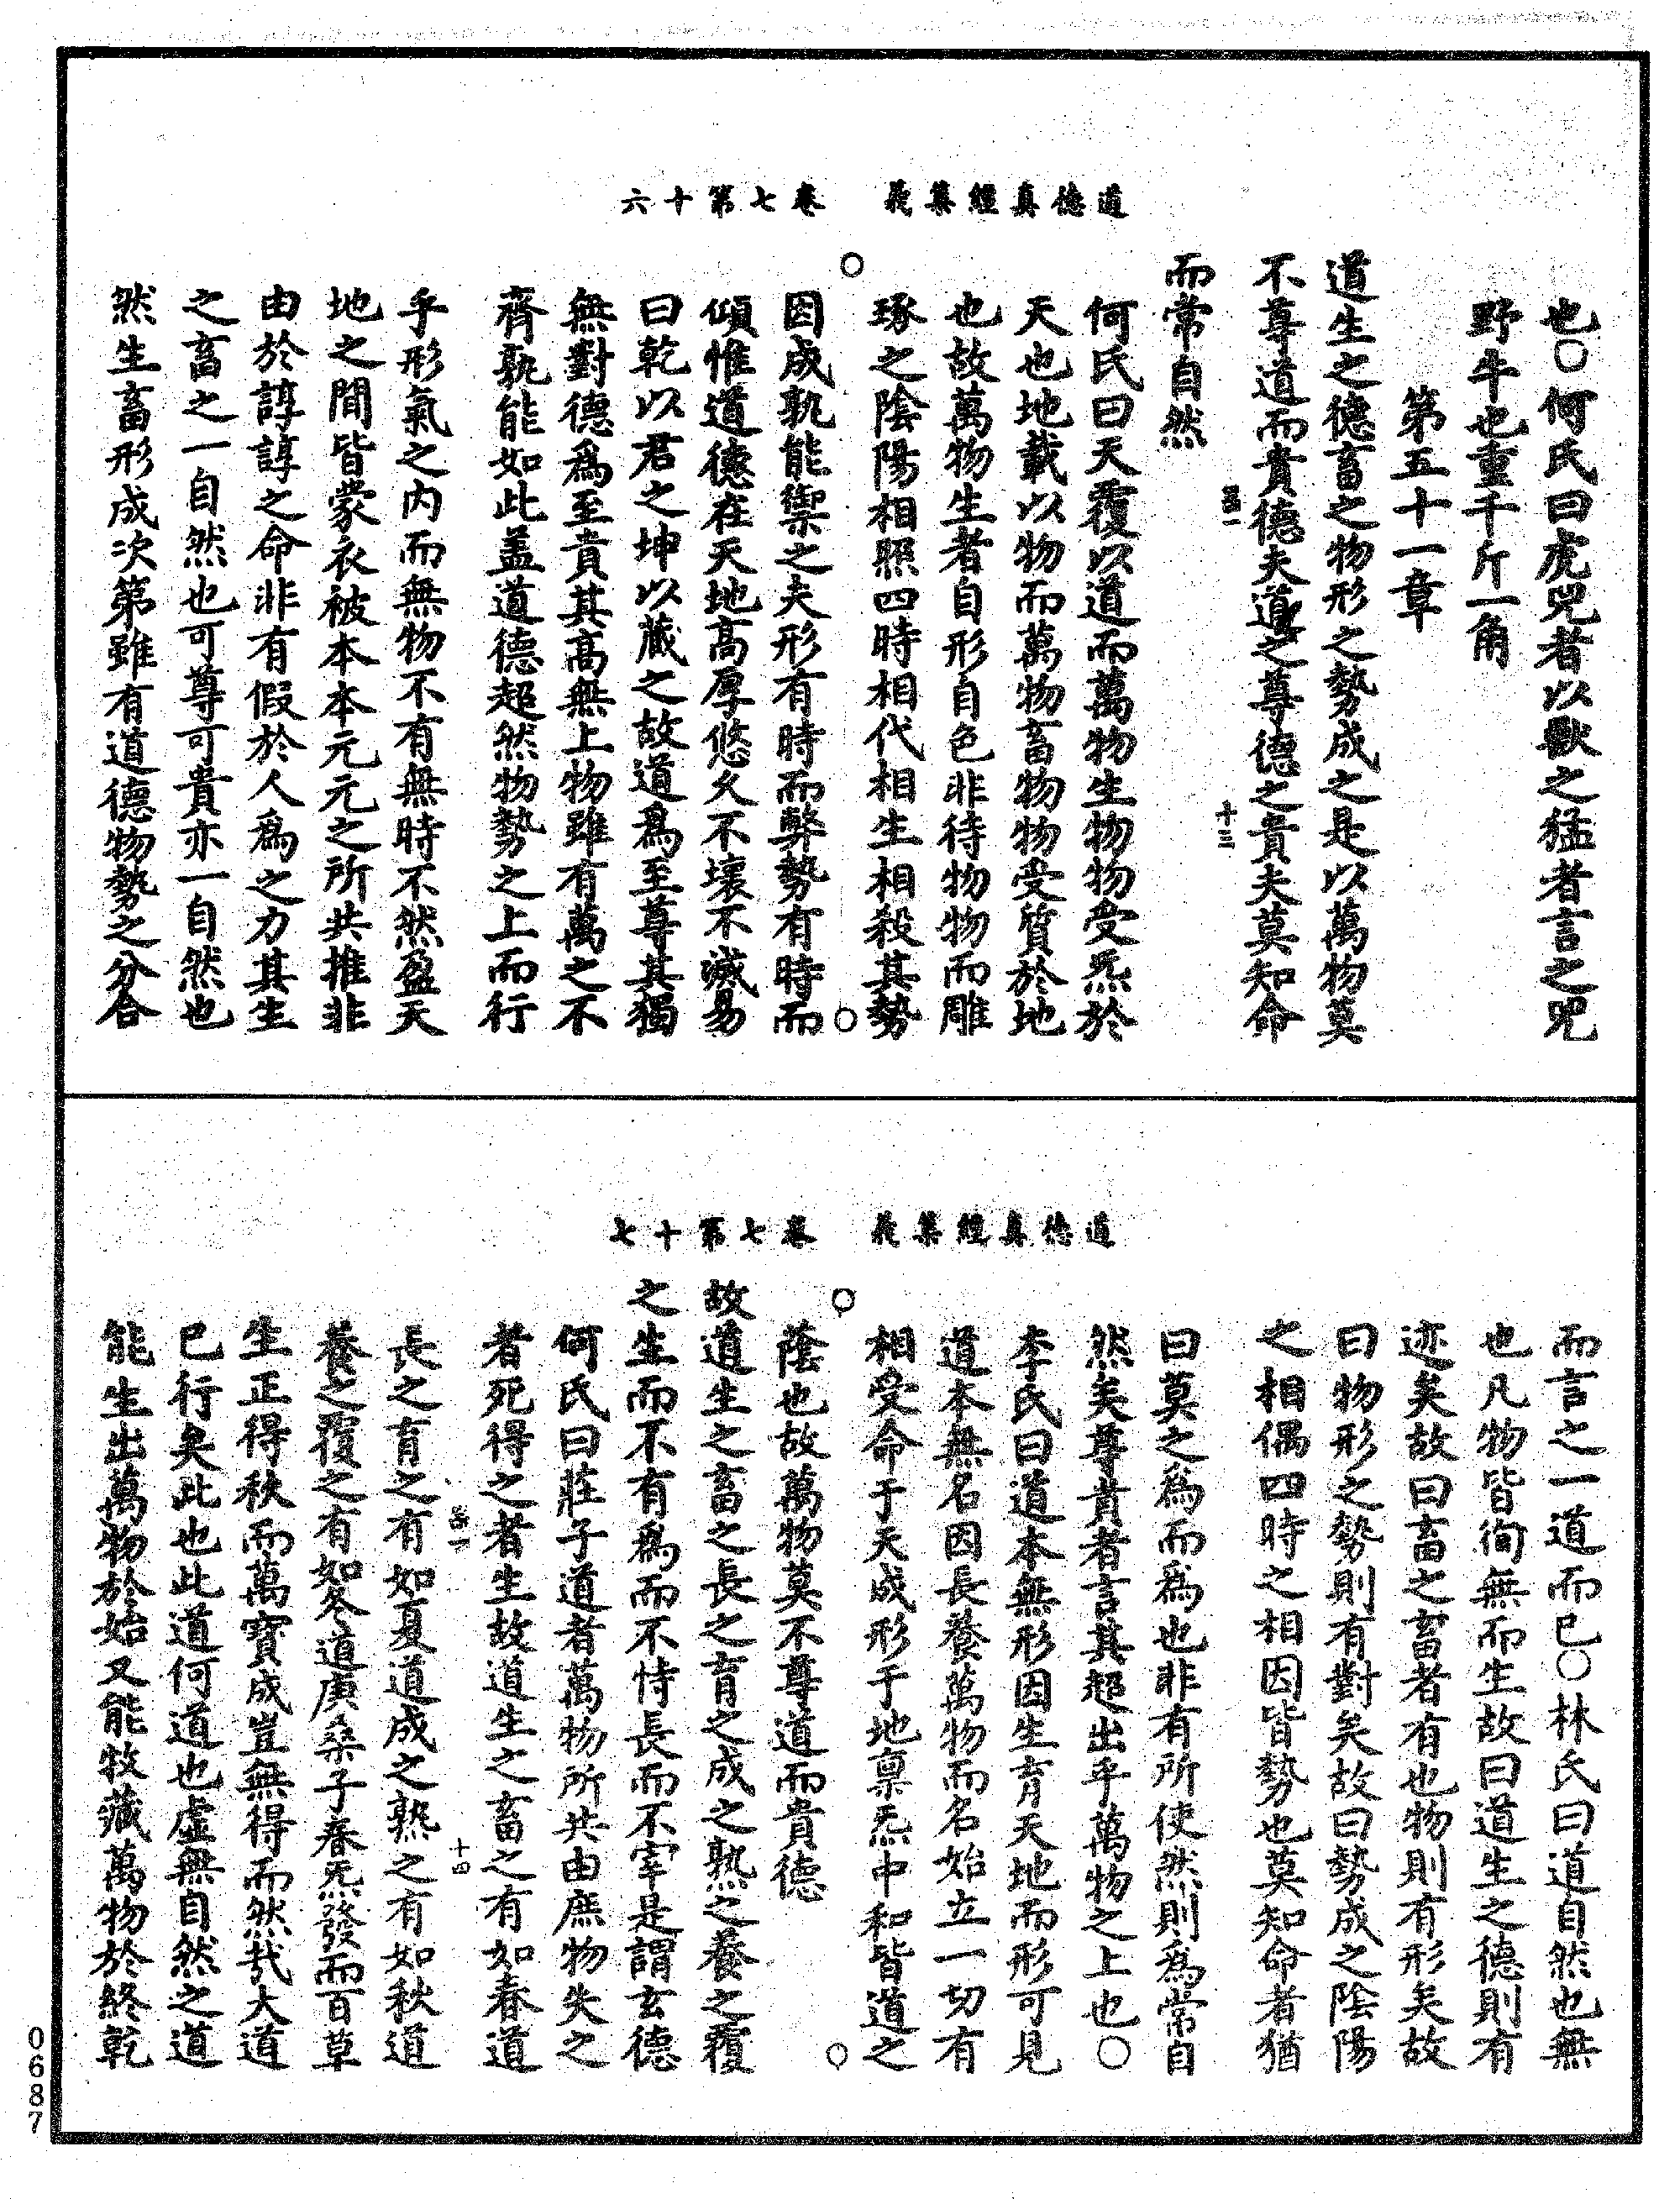 道德真經集義　卷七第十六
也○何氏曰虎兕者以獸之猛者言之兕
野牛也重千斤一角
第五十一章
道生之德畜之物形之勢成之是以萬物莫
不尊道而貴德夫道之尊德之貴夫莫知命
十三
而常自然
何氏曰天覆以道而萬物生物物受炁於
天也地載以物而萬物畜物物受質於地
也故萬物生者自形自色非待物物而雕
琢之陰陽相照四時相代相生相殺其勢
因成孰能禦之夫形有時而弊勢有時而
傾惟道德在天地高厚悠久不壞不滅易
曰乾以君之坤以藏之故道爲至尊其獨
無對德爲至貴其高無上物雖有萬之不
齊孰能如此盖道德超然物勢之上而行
乎形氣之内而無物不有無時不然盈天
地之間皆蒙衣被本本元元之所共推非
由於諄諄之命非有假於人爲之力其生
之畜之一自然也可尊可貴亦一自然也
然生畜形成次第雖有道德物勢之分合
道德真經集義　卷七第十七
而言之一道而已○林氏曰道自然也無
也凡物皆徇無而生故曰道生之德則有
迹矣故曰畜之畜者有也物則有形矣故
曰物形之勢則有對矣故曰勢成之陰陽
之相偶四時之相因皆勢也莫知命者猶
曰莫之爲而爲也非有所使然則爲常自
然矣尊貴者言其超出乎萬物之上也○
李氏曰道本無形因生育天地而形可見
道本無名因長養萬物而名始立一切有
相受命于天成形于地禀炁中和皆道之
蔭也故萬物莫不尊道而貴德
故道生之畜之長之育之成之熟之養之覆
之生而不有爲而不恃長而不宰是謂玄德
何氏曰莊子道者萬物所共由庶物失之
者死得之者生故道生之畜之有如春道
十四
長之育之有如夏道成之熟之有如秋道
養之覆之有如冬道庚桑子春炁發而百草
生正得秋而萬寶成豈無得而然哉大道
已行矣此也此道何道也虛無自然之道
能生出萬物於始又能收藏萬物於終乾
0687